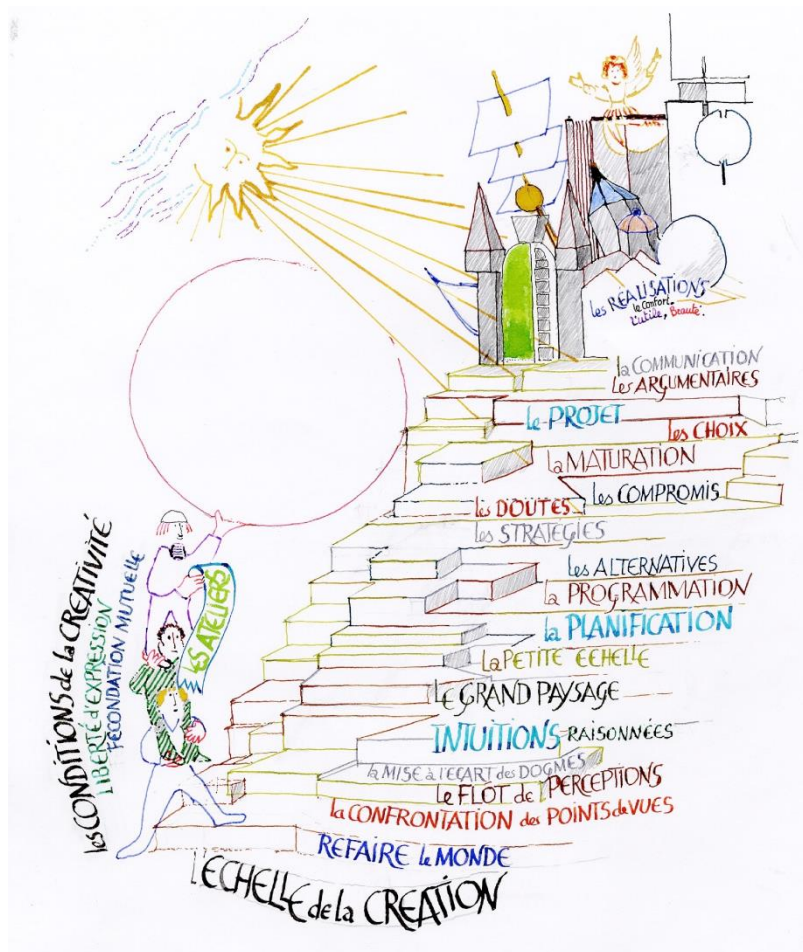 les RÉALISATIONS
le Confort.
l'utile, Beauté.
la COMMUNICATION
les ARGUMENTAIRES
le PROJET
les CHOIX
la MATURATION
les COMPROMIS
les DOUTES
les STRATEGIES
les ALTERNATIVES
la PROGRAMMATION
la PLANIFICATION
la PETITE ECHELLE
LE GRAND PAYSAGE
INTUITIONS RAISONNÉES
la MISE à l'ECART des DOGMES
le FLOT de PERCEPTIONS
la CONFRONTATION des POINTS de VUES
REFAIRE le MONDE
L'ECHELLE de la CREATION
les CONDITIONS de la CREATIVITÉ
LIBERTÉ d'EXPRESSION
FECONDATION MUTUELLE
LES ATELIERS